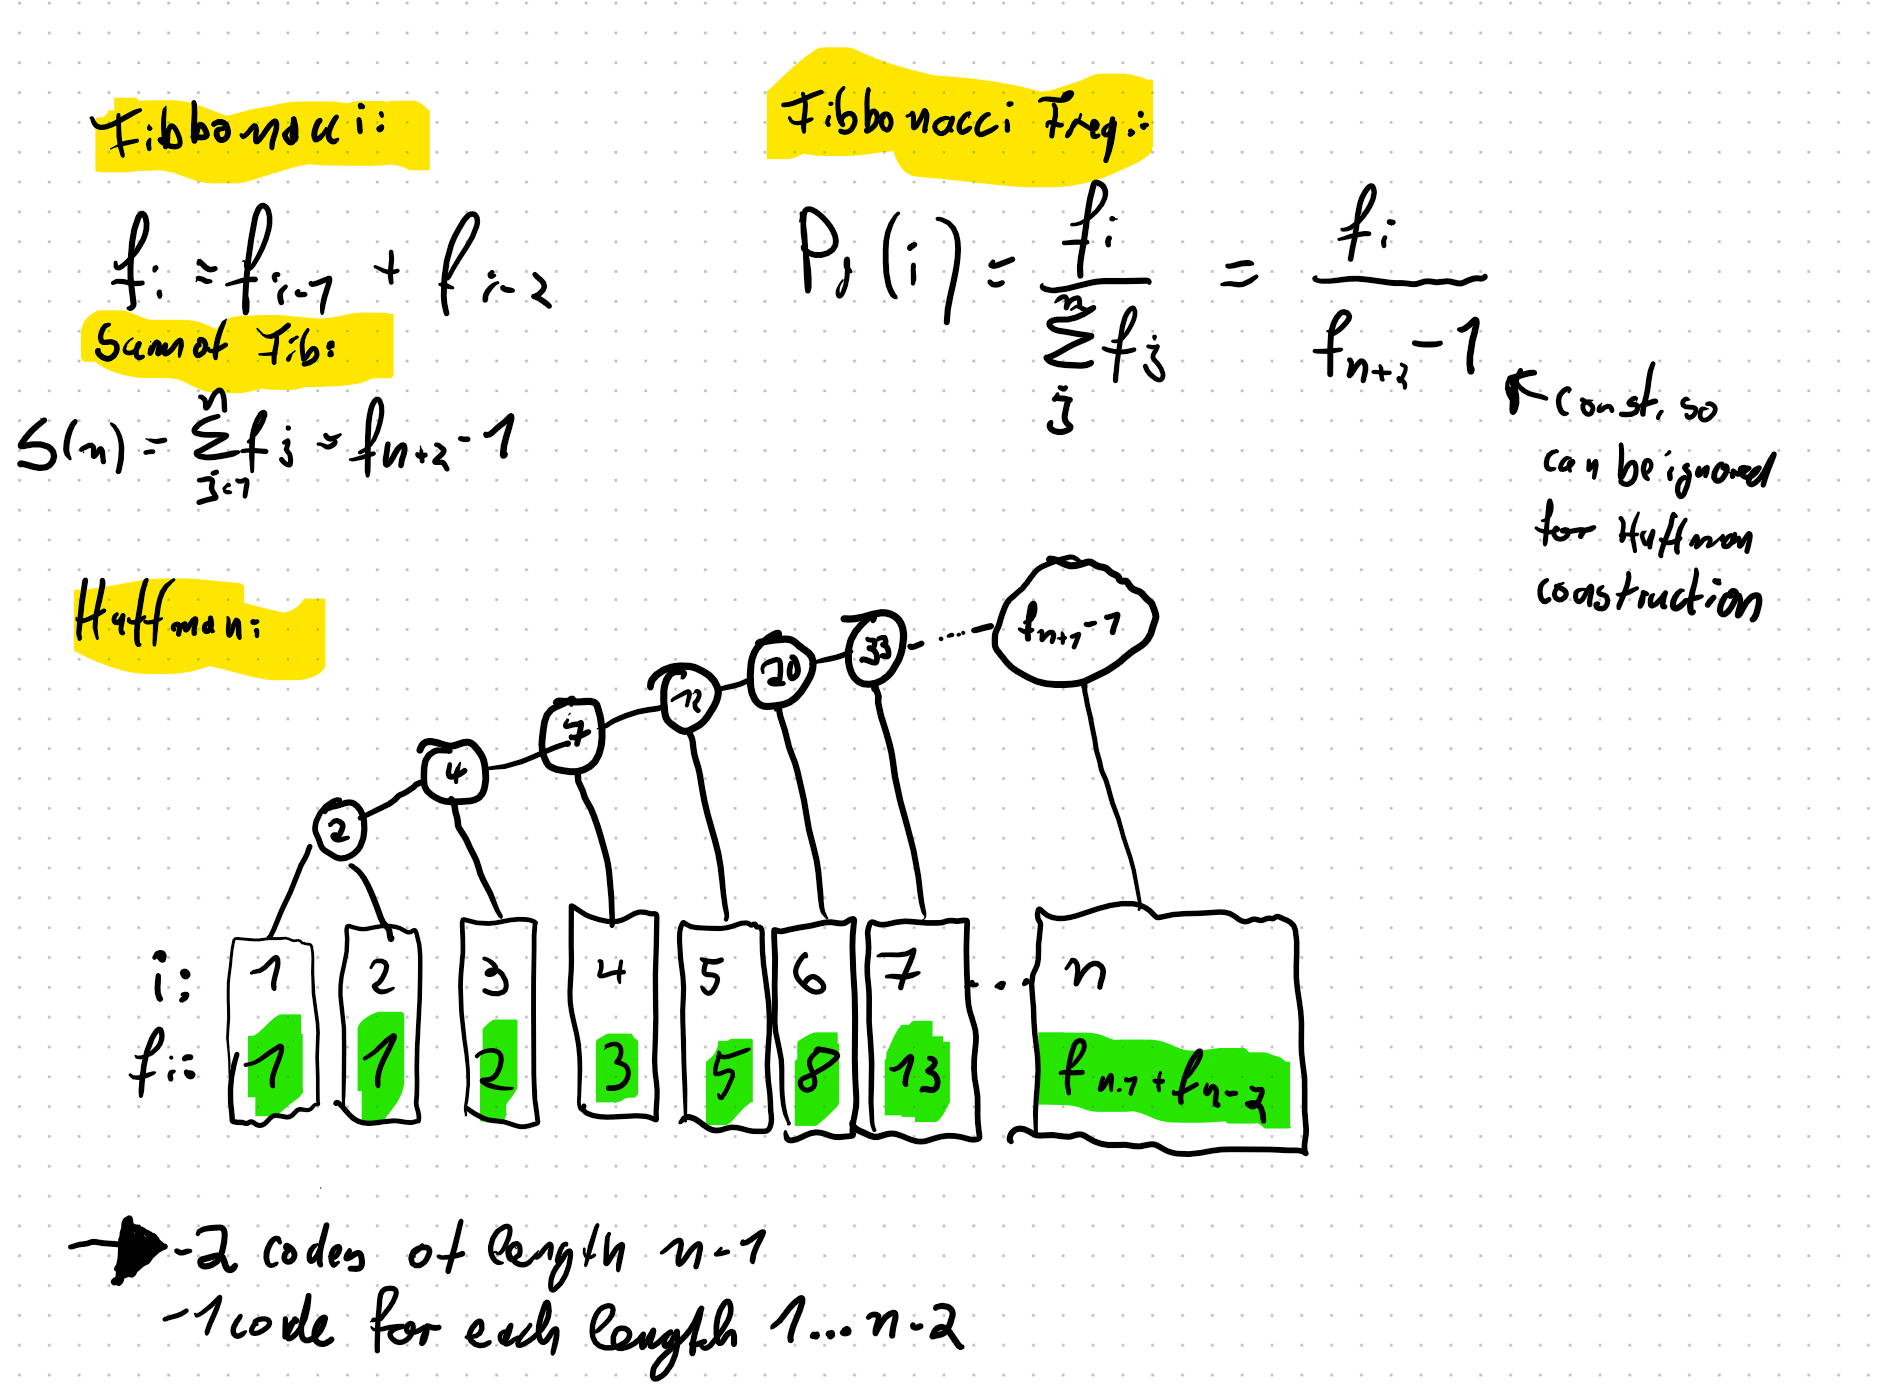 Fibbonacci:
f_i = f_{i-1} + f_{i-2}
Sum of Fib:
S(n) = \sum_{j=1}^{n} f_j = f_{n+2} - 1
Fibbonacci Freq.:
P_f(i) = \frac{f_i}{\sum_{j}^{n} f_j} = \frac{f_i}{f_{n+2} - 1}
← const, so
can be ignored
for Huffman
construction
Huffman:
2 4 7 12 20 33 .... f_{n+1} - 1
i: 1 2 3 4 5 6 7 ... n
f_i: 1 1 2 3 5 8 13 f_{n-1} + f_{n-2}
→ - 2 codes of length n-1
- 1 code for each length 1...n-2